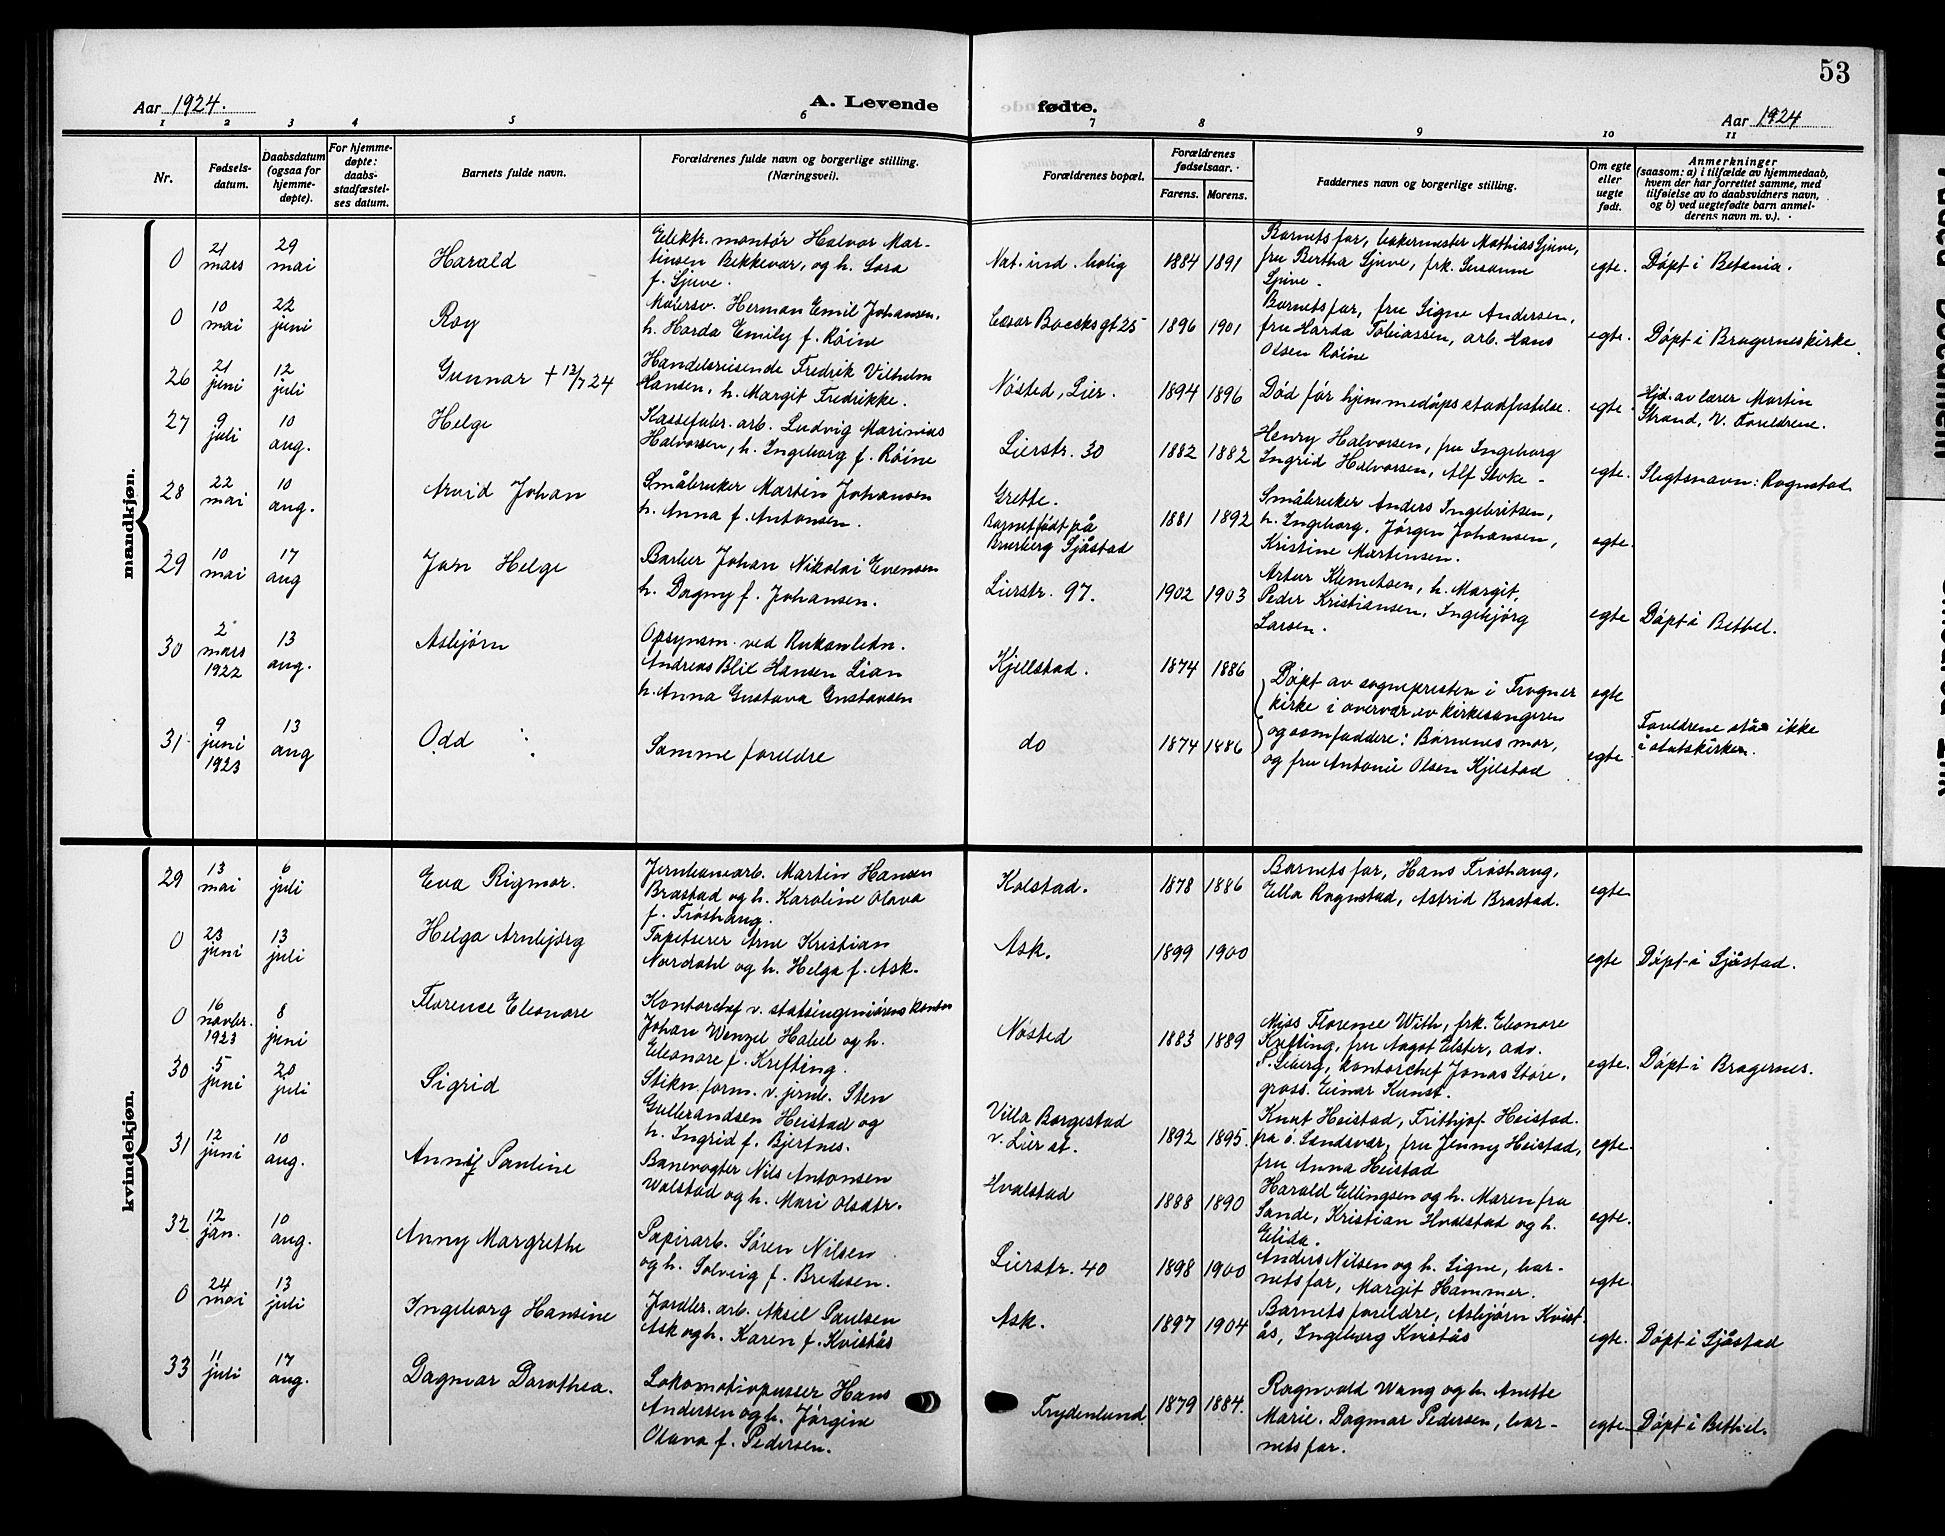 53
Aar 1924.
A. Levende
fødte.
Aar 1924
1 2 3 4 5 6 7 8 9 10 11
Nr.
Fødsels-
datum.
Daabsdatum
(ogsaa for
hjemme-
døpte).
For hjemme-
døpte:
daabs-
stadfæstel-
ses datum.
Barnets fulde navn.
Forældrenes fulde navn og borgerlige stilling.
(Næringsvei).
Forældrenes bopæl.
Forældrenes
fødselsaar.
Farens. Morens.
Faddernes navn og borgerlige stilling.
Om egte
eller
uegte
født.
Anmerkninger
(saasom: a) i tilfælde av hjemmedaab,
hvem der har forrettet samme, med
tilføielse av to daabsvidners navn,
og b) ved uegtefødte barn anmel-
derens navn m. v.).
mandkjøn.
0
21
mars
29
mai
Harald
Elektr. montör Halvor Mar-
tinsen Bekkevar, og h. Sara
f. Sjuve.
Nat. ind. bolig
1884 1891
Barnets far, bakermester Mathias Sjuve,
fru Bertha Sjuve, frk. Susanne
Sjuve.
egte.
Döpt i Betania.
0
10
mai
22
juni
Roy
Malersv. Herman Emil Johansen,
h. Harda Emily f. Röine
Cæsar Boecksgt 25
1896 1901
Barnets far, fru Signe Andersen,
fru Harda Tobiassen, arb. Hans
Olsen Röine
egte.
Döpt i Bragernes kirke.
26
21
juni
12
juli
Gunnar + 12/7 24
Handelsreisende Fredrik Vilhelm
Hansen, h. Margit Fredrikke.
Nösted, Lier.
1894 1896
Död för hjemmedåps stadfestelse.
egte.
Hjd. av lærer Martin
Strand, V. Foreldrene.
27
9
juli
10
aug.
Helge
Kassefabr. arb. Ludvig Marinius
Halvorsen, h. Ingeborg f. Röine
Lierstr. 30
1882 1882
Henry Halvorsen, fru Ingeborg
Ingrid Halvorsen, Alf Stoke
egte.
Slegtsnavn: Rognstad
28
22
mai
10
aug.
Arvid Johan
Småbruker Martin Johansen
h. Anna f. Antonsen.
Grette.
Barnet födt på
Bruberg Sjåstad
1881 1892
Småbruker Anders Ingebritsen,
h. Ingeborg, Jörgen Johansen,
Kristine Martinsen.
egte.
29
10
mai
17
aug
Jan Helge
Barber Johan Nikolai Evensen
h. Dagny f. Johansen.
Lierstr. 97.
1902 1903
Artur Klemetsen, h. Margit,
Peder Kristiansen, Ingebjørg
Larsen.
egte
Döpt i Bethel.
30
2
mars
1922
13
aug.
Asbjörn
Opsynsm. ved Rukanledn.
Andreas Blix Hansen Lian
h. Anna Gustava Gustavsen
Kjellstad.
1874 1886
Döpt av sognepresten i Frogner
kirke i overvær av kirkesangeren
og som faddere: Barnenes mor,
og fru Antonie Olsen Kjelstad
egte
31
9
juni
1923
13
aug
Odd
Samme foreldre
do
1874 1886
egte
Foreldrene står ikke
i statskirken.
kvindekjøn.
29
13
mai
6
juli
Eva Rigmor.
Jernbanearb. Martin Hansen
Brastad og h. Karoline Olava
f. Tröshaug.
Kolstad.
1878 1886
Barnets far, Hans Tröshaug,
Ella Rognstad, Astrid Brastad.
egte
0
23
juni
13
juli
Helga Arnbjörg
Tapetserer Arne Kristian
Nordahl og h. Helga f. Ask.
Ask.
1899 1900
egte
Döpt i Sjåstad.
0
16
novbr.
1923
8
juni
Florence Eleonore
Kontorchef v. statsingeniörens kontor
Johan Wenzel Habel og h.
Eleonore f. Krefting.
Nösted
1883 1889
Miss Florence With, frk. Eleonore
Krefting, fru Aagot Elster, adv.
kontorchef Jonas Störe,
gross. Einar Kunst.
egte.
Döpt i Bragernes.
30
5
juni
20
juli
Sigrid
Stikn. form. v. jrnb. Sten
Gulbrandsen Heistad og
h. Ingrid f. Bjertnes.
Villa Borgestad
v. Lier st.
1892 1895.
Knut Heistad, Frithjof Heistad
fra ö. Sandsvær, fru Jenny Heistad,
fru Anna Heistad
egte.
31
12
juni
10
aug.
Anny Pauline
Banevogter Nils Antonsen
Walstad og h. Mari Olsdtr.
Hvalstad
1888 1890
Harald Ellingsen og h. Maren fra
Sande, Kristian Hvalstad og h.
Elida.
egte.
32
12
jan.
10
aug.
Anny Margrethe
Papirarb. Sören Nilsen
og h. Solveig f. Bredesen.
Lierstr. 40
1898 1900
Anders Nilsen og h. Signe, bar-
nets far, Margit Hammer.
egte
0
24
mai
13
juli
Ingeborg Hansine
Jordbr. arb. Aksel Paulsen
Ask og h. Karen f. Kvistås
Ask.
1897 1904
Barnets foreldre, Asbjörn Kvist-
ås, Ingeborg Kvistås
egte.
Döpt i Sjåstad
33
11
juli
17
aug.
Dagmar Dorothea.
Lokomotivpusser Hans
Andersen og h. Jörgine
Olava f. Pedersen.
Frydenlund
1879 1884.
Ragnvald Wang og h. Anette
Marie. Dagmar Pedersen, bar-
nets far.
egte
Döpt i Bethel.